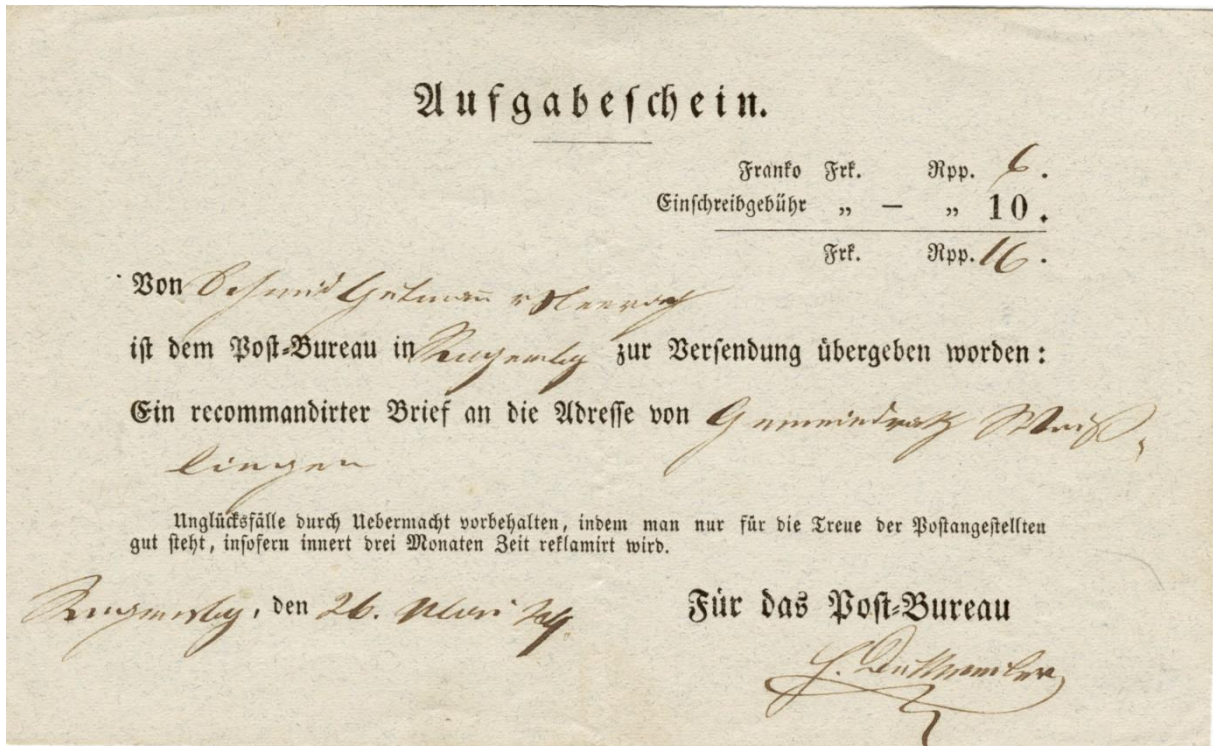 Aufgabeschein.
Franko Frk. Rpp. 6.
Einschreibgebühr „ — „ 10.
Frk. Rpp. 16.
Von Schmid
ist dem Post-Bureau in zur Versendung übergeben worden:
Ein recommandirter Brief an die Adresse von Gemeindrath Weiß-
lingen
Unglücksfälle durch Uebermacht vorbehalten, indem man nur für die Treue der Postangestellten
gut steht, insofern innert drei Monaten Zeit reklamirt wird.
, den 26.
Für das Post-Bureau